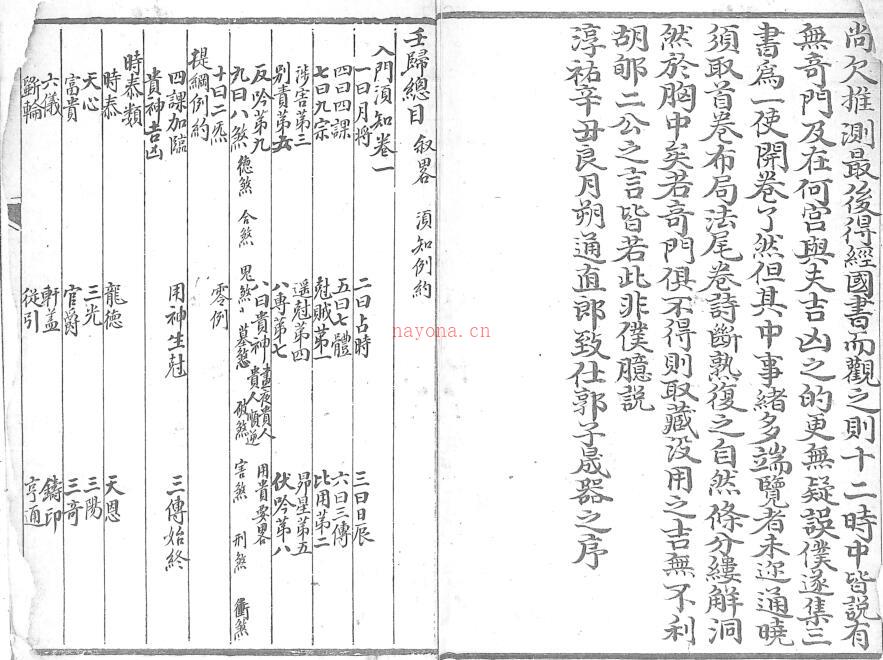 尚欠推測最後得經國書而觀之則十二時中皆說有
無奇門及在何宮與夫吉凶之的更無疑誤僕遂集三
書爲一使開卷了然但其中事緒多端覽者未迩通曉
須取首卷布局法尾卷詩斷熟復之自然條分縷解洞
然於胸中矣若奇門俱不得則取藏没用之吉無不利
胡郇二公之言皆若此非僕臆説
淳祐辛丑良月朔通直郎致仕郭子晟器之序
壬歸總目 叙畧 須知例約
入門須知卷一
一曰月將 二曰占時 三曰日辰
四曰四課 五曰七體 六曰三傳
七曰九宗 尅賊第一 比用第二
涉害第三 遥尅第四 昴星第五
别責第六 八專第七 伏吟第八
反吟第九 八曰貴神 晝夜貴人 貴人順逆 用貴要畧
九曰八煞 德煞 合煞 鬼煞 墓煞 破煞 害煞 刑煞 衝煞
十曰二𤇆 零例
提綱例約
四課加臨 用神生尅 三傳始終
貴神吉凶
時泰類
時泰 龍德 天恩
天心 三光 三陽
富貴 官爵 三奇
六儀 軒盖 鑄印
斲輪 從引 亨通
nayona.cn